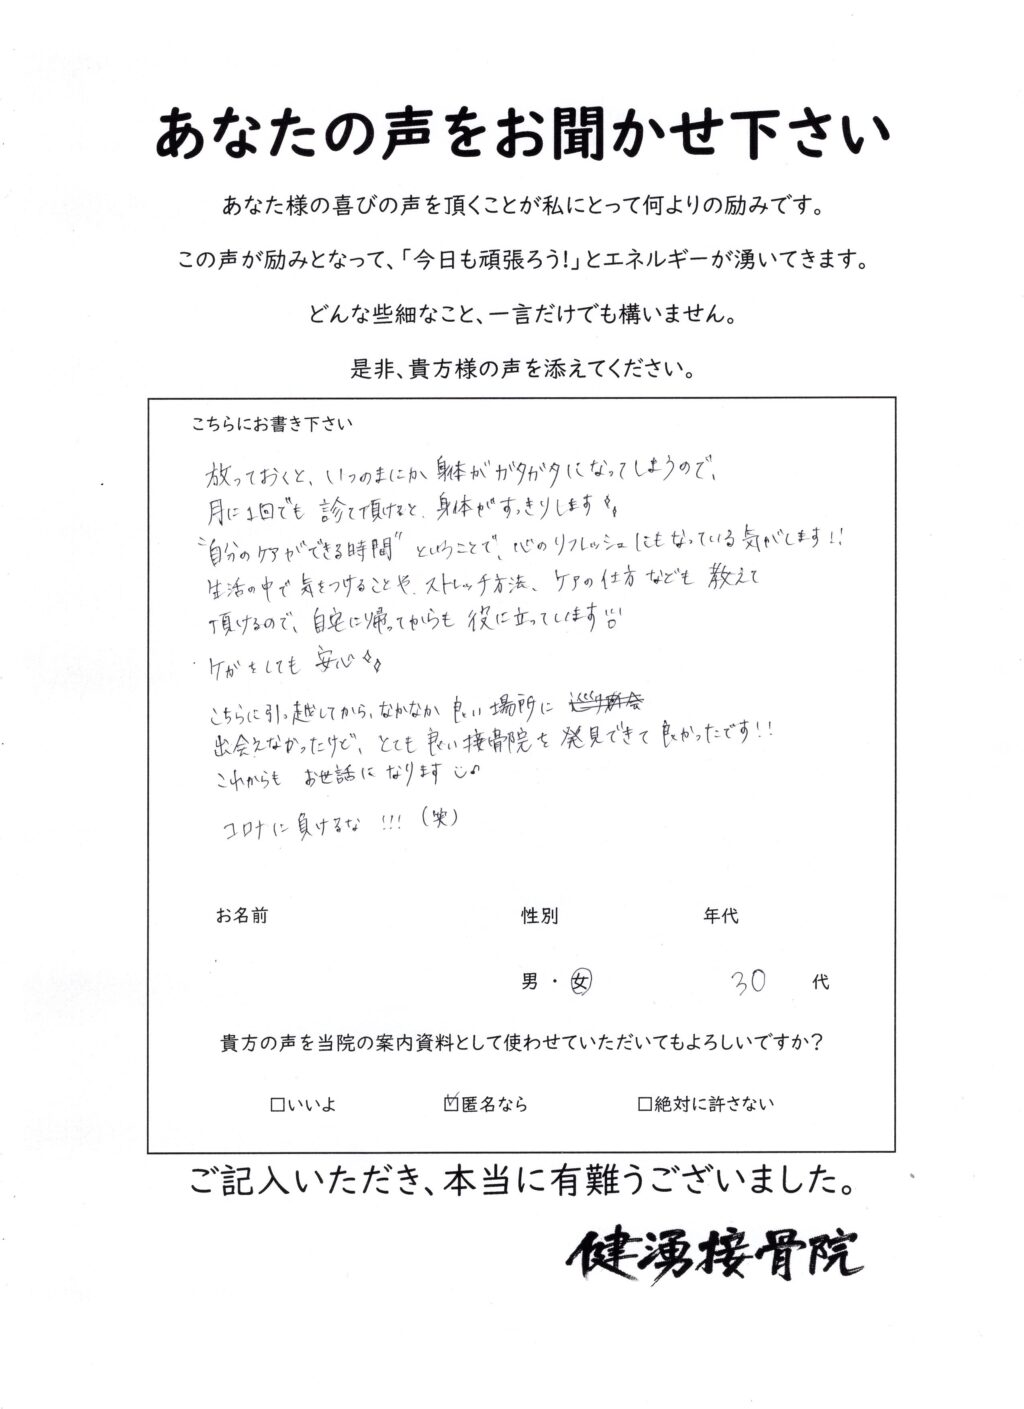 あなたの声をお聞かせ下さい
あなた様の喜びの声を頂くことが私にとって何よりの励みです。
この声が励みとなって、「今日も頑張ろう!」とエネルギーが湧いてきます。
どんな些細なこと、一言だけでも構いません。
是非、貴方様の声を添えてください。
こちらにお書き下さい
放っておくと、いつのまにか身体がガタガタになってしまうので、
月に1回でも診て頂けると、身体がすっきりします
"自分のケアができる時間"ということで、心のリフレッシュにもなっている気がします!!
生活の中で気をつけることや、ストレッチ方法、ケアの仕方なども教えて
頂けるので、自宅に帰ってからも役に立っています
ケガをしても安心
こちらに引っ越してから、なかなか良い場所に
出会えなかったけど、とても良い接骨院を発見できて良かったです!!
これからもお世話になります♪
コロナに負けるな!!!(笑)
お名前 性別 年代
男・女 30代
貴方の声を当院の案内資料として使わせていただいてもよろしいですか?
□いいよ ☑匿名なら □絶対に許さない
ご記入いただき、本当に有難うございました。
健湧接骨院